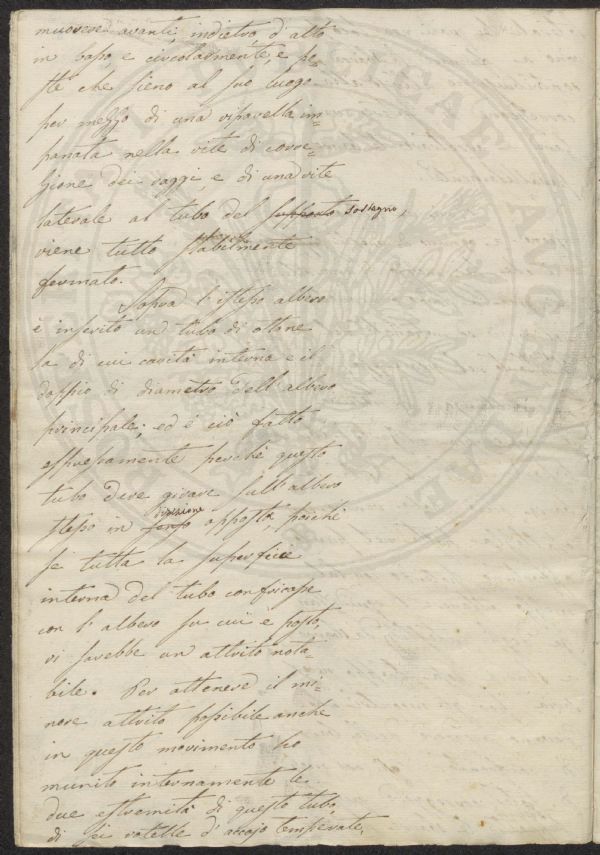 muovere avanti, indietro, d'alto
in basso, e circolarmente, e po-
sti che sieno al suo luogo
per mezzo di una riparella im-
panata nella vite di corre-
zione dei raggi, e di una vite
laterale al tubo del supporto sostegno,
viene tutto stabilmente
fermato.
Sopra l'istesso albero
è inserito un tubo di ottone
la di cui cavità interna è il
doppio di diametro dell'albero
principale; ed è ciò fatto
espressamente perché questo
tubo deve girare sull'albero
stesso in senso direzione opposta, poiché
se tutta la superficie
interna del tubo confricasse
con l'albero su cui è posto,
vi sarebbe un attrito nota-
bile. Per ottenere il mi-
nore attrito possibile anche
in questo movimento ho
munito internamente le
due estremità di questo tubo
di sei rotelle d'acciajo temperate,